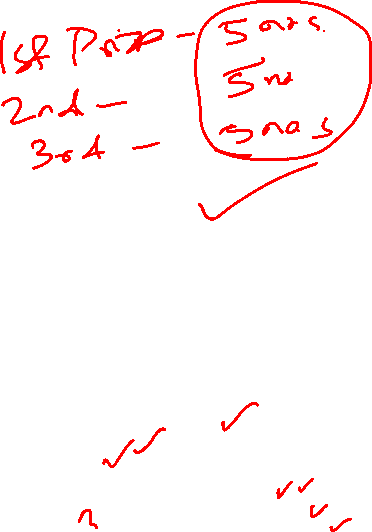 1st Prize - 5 nos.
2nd - 5 no
3rd - 5 nos